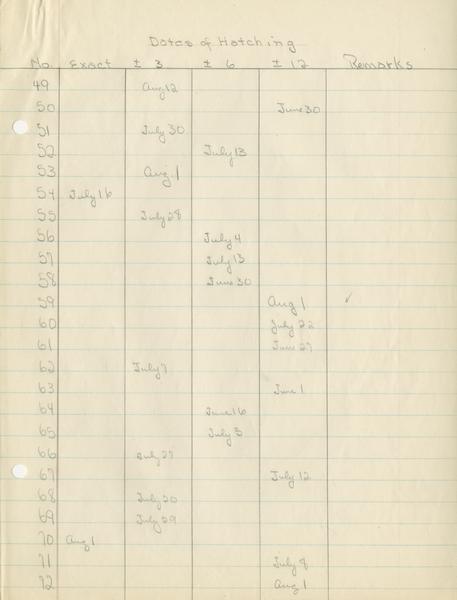 Dates of Hatching
No. Exact ± 3 ± 6 ± 12 Remarks
49 Aug 12
50 June 30
51 July 30
52 July 13
53 Aug. 1
54 July 16
55 July 28
56 July 4
57 July 13
58 June 30
59 Aug 1 ✓
60 July 22
61 June 27
62 July 7
63 June 1
64 June 16
65 July 3
66 July 27
67 July 12
68 July 20
69 July 29
70 Aug 1
71 July 8
72 Aug 1